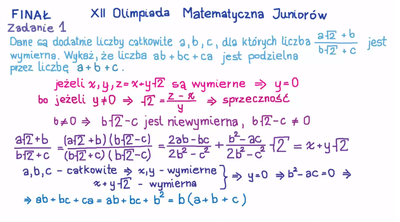 FINAŁ XII Olimpiada Matematyczna Juniorów
Zadanie 1
Dane są dodatnie liczby całkowite a, b, c, dla których liczba (a√2 + b)/(b√2 + c) jest
wymierna. Wykaż, że liczba ab + bc + ca jest podzielna
przez liczbę a + b + c.
jeżeli x, y, z = x + y√2 są wymierne ⇒ y = 0
bo jeżeli y ≠ 0 ⇒ √2 = (z - x)/y ⇒ sprzeczność
b ≠ 0 ⇒ b√2 - c jest niewymierna, b√2 - c ≠ 0
(a√2 + b)/(b√2 + c) = (a√2 + b)(b√2 - c)/(b√2 + c)(b√2 - c) = (2ab - bc)/(2b² - c²) + (b² - ac)/(2b² - c²) √2 = x + y√2
a, b, c - całkowite ⇒ x, y - wymierne
x + y√2 - wymierna } ⇒ y = 0 ⇒ b² - ac = 0 ⇒
⇒ ab + bc + ca = ab + bc + b² = b(a + b + c)